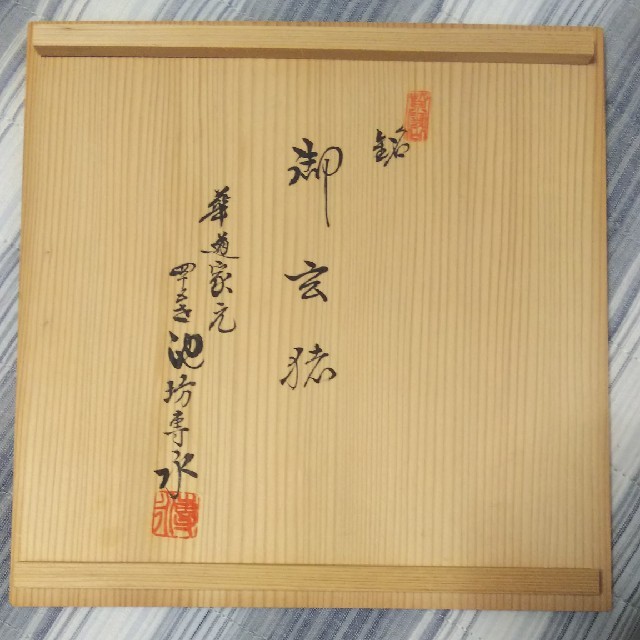 銘
御玄猪
華道家元
四十五世池坊専永